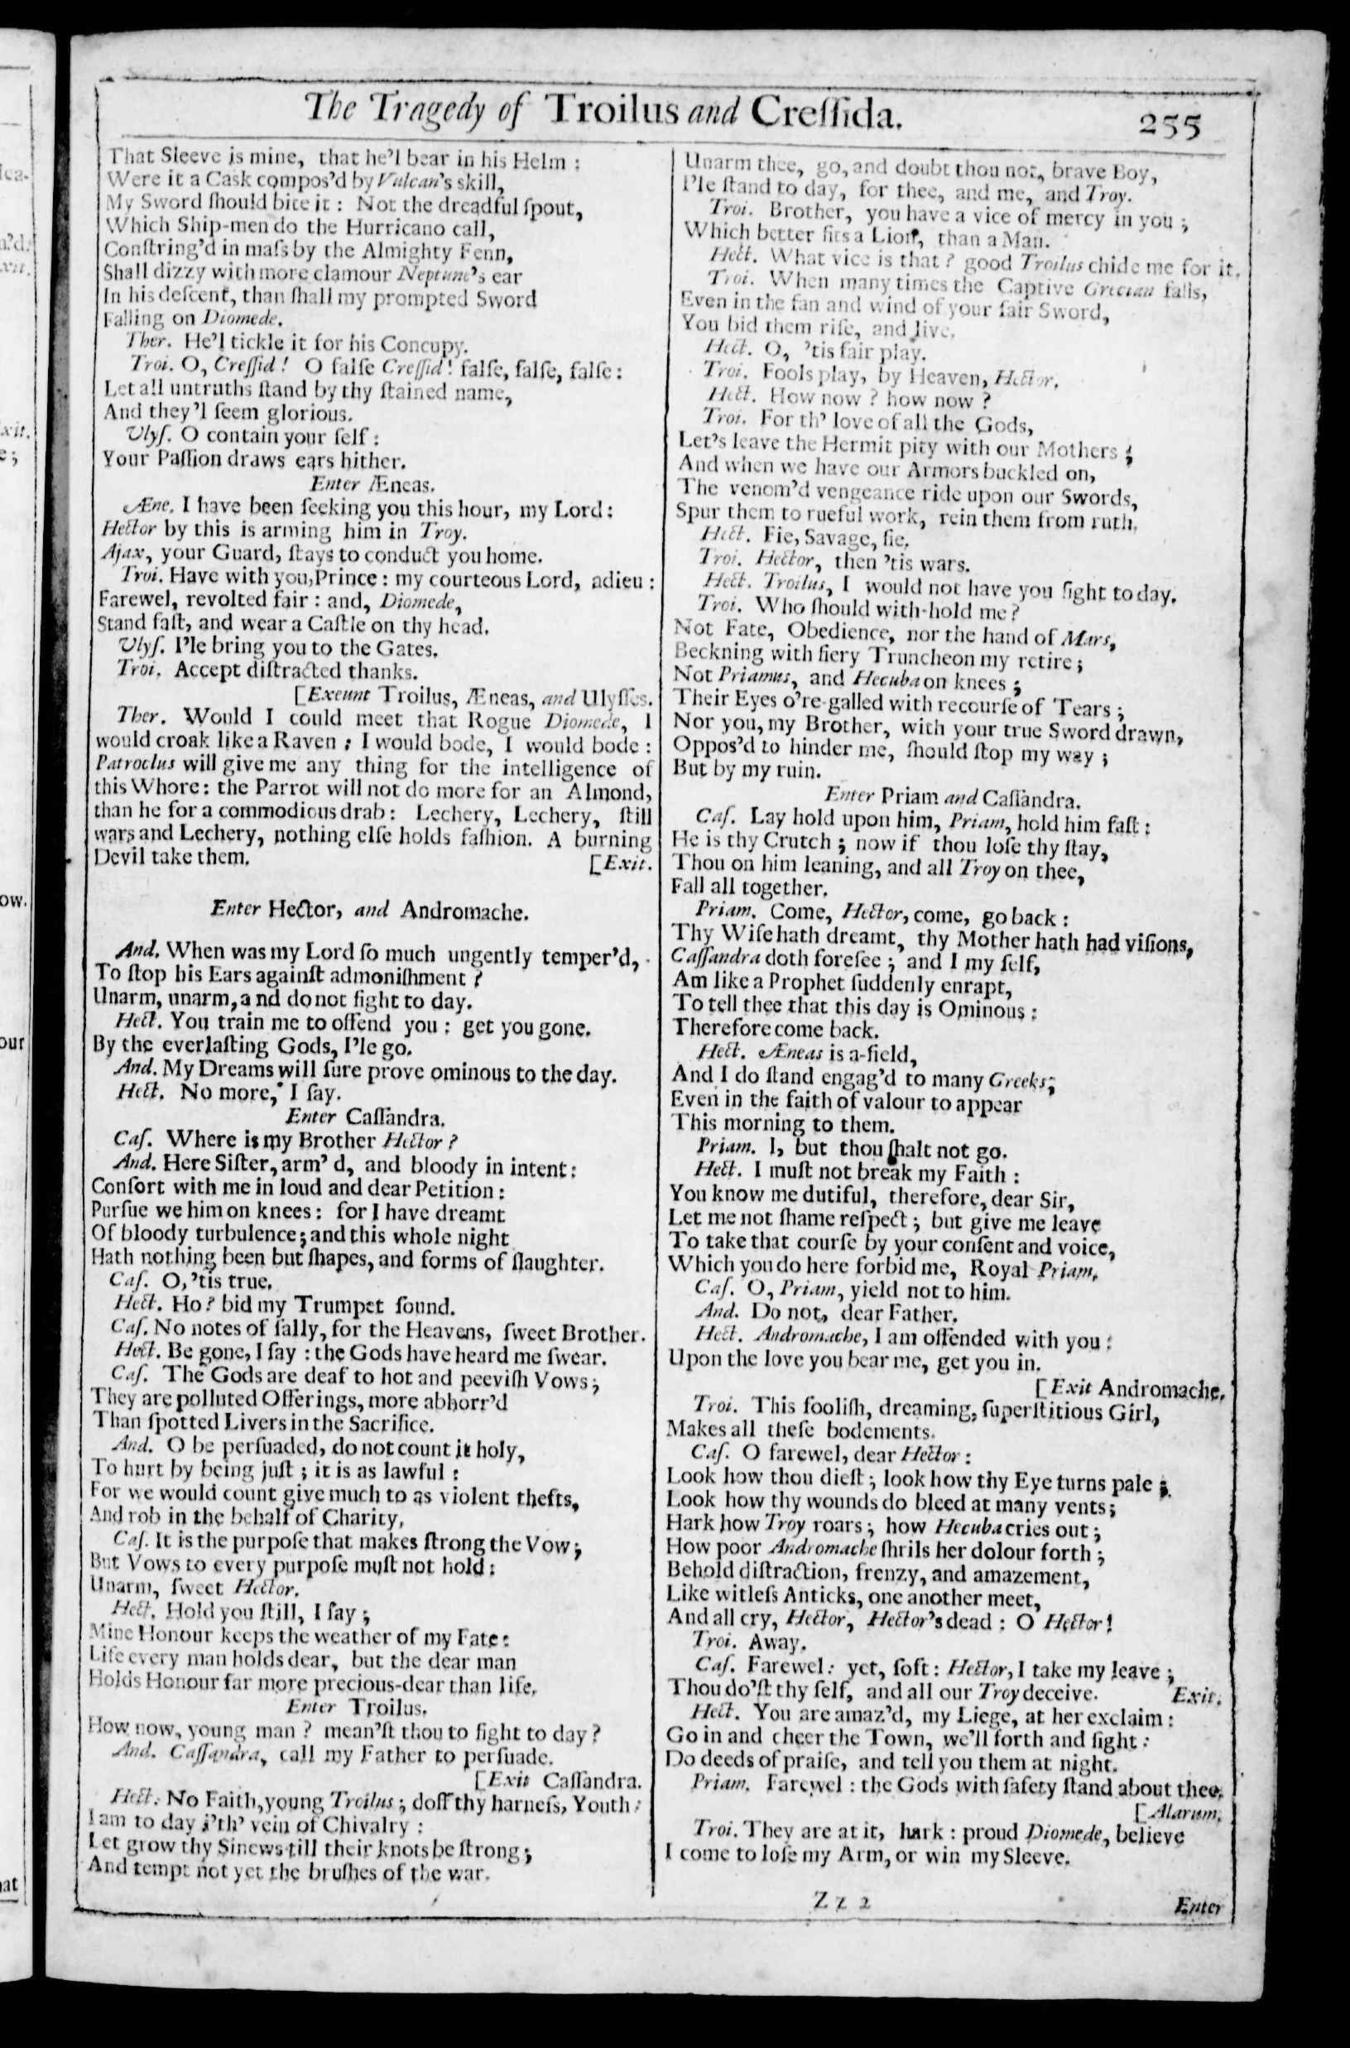 The Tragedy of Troilus and Creſſida. 255
That Sleeve is mine, that he'l bear in his Helm:
Were it a Cask compos'd by Vulcan's skill,
My Sword ſhould bite it: Not the dreadful ſpout,
Which Ship-men do the Hurricano call,
Conſtring'd in maſs by the Almighty Fenn,
Shall dizzy with more clamour Neptune's ear
In his deſcent, than ſhall my prompted Sword
Falling on Diomede.
Ther. He'l tickle it for his Concupy.
Troi. O, Creſſid! O falſe Creſſid! falſe, falſe, falſe:
Let all untruths ſtand by thy ſtained name,
And they'l ſeem glorious.
Ulyſ. O contain your ſelf:
Your Paſſion draws ears hither.
Enter Æneas.
Æne. I have been ſeeking you this hour, my Lord:
Hector by this is arming him in Troy.
Ajax, your Guard, ſtays to conduct you home.
Troi. Have with you, Prince: my courteous Lord, adieu:
Farewel, revolted fair: and, Diomede,
Stand faſt, and wear a Caſtle on thy head.
Ulyſ. I'le bring you to the Gates.
Troi. Accept diſtracted thanks.
[Exeunt Troilus, Æneas, and Ulyſſes.
Ther. Would I could meet that Rogue Diomede, I
would croak like a Raven: I would bode, I would bode:
Patroclus will give me any thing for the intelligence of
this Whore: the Parrot will not do more for an Almond,
than he for a commodious drab: Lechery, Lechery, ſtill
wars and Lechery, nothing elſe holds faſhion. A burning
Devil take them. [Exit.
Enter Hector, and Andromache.
And. When was my Lord ſo much ungently temper'd,
To ſtop his Ears againſt admoniſhment?
Unarm, unarm, a nd do not fight to day.
Hect. You train me to offend you: get you gone.
By the everlaſting Gods, I'le go.
And. My Dreams will ſure prove ominous to the day.
Hect. No more, I ſay.
Enter Caſſandra.
Caſ. Where is my Brother Hector?
And. Here Siſter, arm' d, and bloody in intent:
Conſort with me in loud and dear Petition:
Purſue we him on knees: for I have dreamt
Of bloody turbulence; and this whole night
Hath nothing been but ſhapes, and forms of ſlaughter.
Caſ. O, 'tis true.
Hect. Ho? bid my Trumpet ſound.
Caſ. No notes of ſally, for the Heavens, ſweet Brother.
Hect. Be gone, I ſay: the Gods have heard me ſwear.
Caſ. The Gods are deaf to hot and peeviſh Vows;
They are polluted Offerings, more abhorr'd
Than ſpotted Livers in the Sacrifice.
And. O be perſuaded, do not count it holy,
To hurt by being juſt; it is as lawful:
For we would count give much to as violent thefts,
And rob in the behalf of Charity.
Caſ. It is the purpoſe that makes ſtrong the Vow;
But Vows to every purpoſe muſt not hold:
Unarm, ſweet Hector.
Hect. Hold you ſtill, I ſay;
Mine Honour keeps the weather of my Fate:
Life every man holds dear, but the dear man
Holds Honour far more precious-dear than life.
Enter Troilus.
How now, young man? mean'ſt thou to fight to day?
And. Caſſandra, call my Father to perſuade.
[Exit Caſſandra.
Hect. No Faith, young Troilus; doff thy harneſs, Youth:
I am to day i'th' vein of Chivalry:
Let grow thy Sinews till their knots be ſtrong;
And tempt not yet the bruſhes of the war.
Unarm thee, go, and doubt thou not, brave Boy,
I'le ſtand to day, for thee, and me, and Troy.
Troi. Brother, you have a vice of mercy in you;
Which better fits a Lion, than a Man.
Hect. What vice is that? good Troilus chide me for it.
Troi. When many times the Captive Grecian falls,
Even in the fan and wind of your fair Sword,
You bid them riſe, and live.
Hect. O, 'tis fair play.
Troi. Fools play, by Heaven, Hector.
Hect. How now? how now?
Troi. For th' love of all the Gods,
Let's leave the Hermit pity with our Mothers;
And when we have our Armors buckled on,
The venom'd vengeance ride upon our Swords,
Spur them to rueful work, rein them from ruth.
Hect. Fie, Savage, fie.
Troi. Hector, then 'tis wars.
Hect. Troilus, I would not have you fight to day.
Troi. Who ſhould with-hold me?
Not Fate, Obedience, nor the hand of Mars,
Beckning with fiery Truncheon my retire;
Not Priamus, and Hecuba on knees;
Their Eyes o're-galled with recourſe of Tears;
Nor you, my Brother, with your true Sword drawn,
Oppos'd to hinder me, ſhould ſtop my way;
But by my ruin.
Enter Priam and Caſſandra.
Caſ. Lay hold upon him, Priam, hold him faſt:
He is thy Crutch; now if thou loſe thy ſtay,
Thou on him leaning, and all Troy on thee,
Fall all together.
Priam. Come, Hector, come, go back:
Thy Wife hath dreamt, thy Mother hath had viſions,
Caſſandra doth foreſee; and I my ſelf,
Am like a Prophet ſuddenly enrapt,
To tell thee that this day is Ominous:
Therefore come back.
Hect. Æneas is a-field,
And I do ſtand engag'd to many Greeks;
Even in the faith of valour to appear
This morning to them.
Priam. I, but thou ſhalt not go.
Hect. I muſt not break my Faith:
You know me dutiful, therefore, dear Sir,
Let me not ſhame reſpect; but give me leave
To take that courſe by your conſent and voice,
Which you do here forbid me, Royal Priam.
Caſ. O, Priam, yield not to him.
And. Do not, dear Father.
Hect. Andromache, I am offended with you:
Upon the love you bear me, get you in.
[Exit Andromache.
Troi. This fooliſh, dreaming, ſuperſtitious Girl,
Makes all theſe bodements.
Caſ. O farewel, dear Hector:
Look how thou dieſt; look how thy Eye turns pale;
Look how thy wounds do bleed at many vents;
Hark how Troy roars; how Hecuba cries out;
How poor Andromache ſhrils her dolour forth;
Behold diſtraction, frenzy, and amazement,
Like witleſs Anticks, one another meet,
And all cry, Hector, Hector's dead: O Hector!
Troi. Away.
Caſ. Farewel: yet, ſoft: Hector, I take my leave;
Thou do'ſt thy ſelf, and all our Troy deceive. Exit.
Hect. You are amaz'd, my Liege, at her exclaim:
Go in and cheer the Town, we'll forth and fight:
Do deeds of praiſe, and tell you them at night.
Priam. Farewel: the Gods with ſafety ſtand about thee.
[Alarum.
Troi. They are at it, hark: proud Diomede, believe
I come to loſe my Arm, or win my Sleeve.
Z z 2 Enter